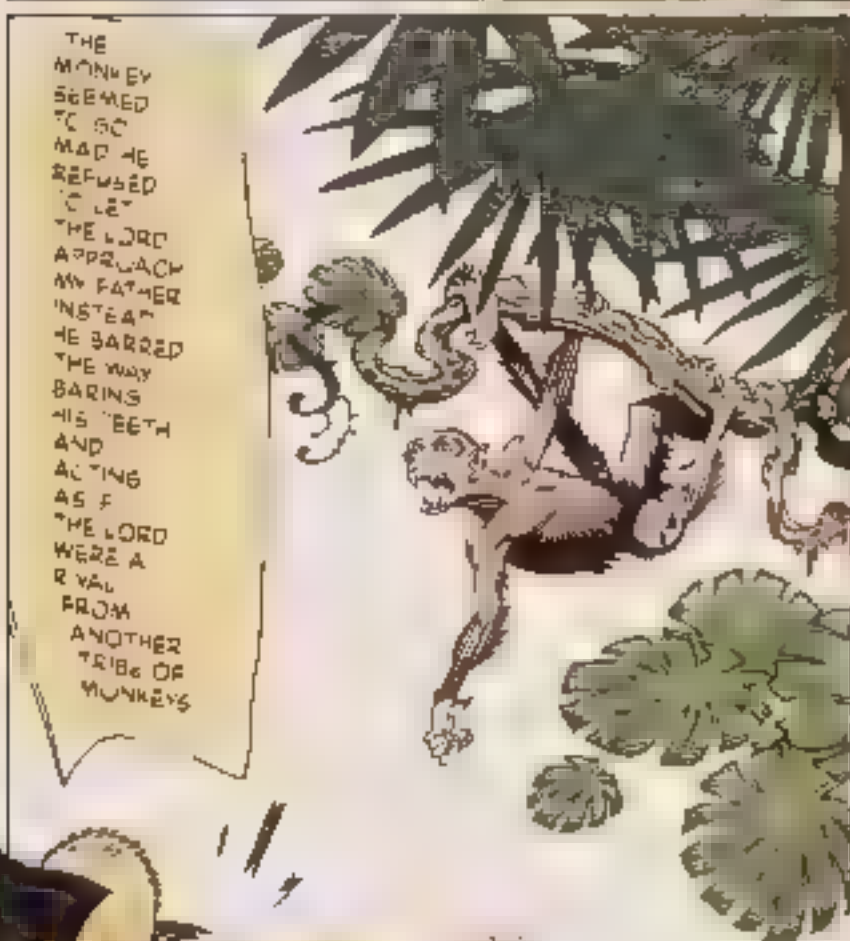 THE
MONKEY
SEEMED
TO GO
MAD HE
REFUSED
TO LET
THE LORD
APPROACH
MY FATHER
INSTEAD
HE BARRED
THE WAY
BARING
HIS TEETH
AND
ACTING
AS IF
THE LORD
WERE A
RIVAL
FROM
ANOTHER
TRIBE OF
MONKEYS